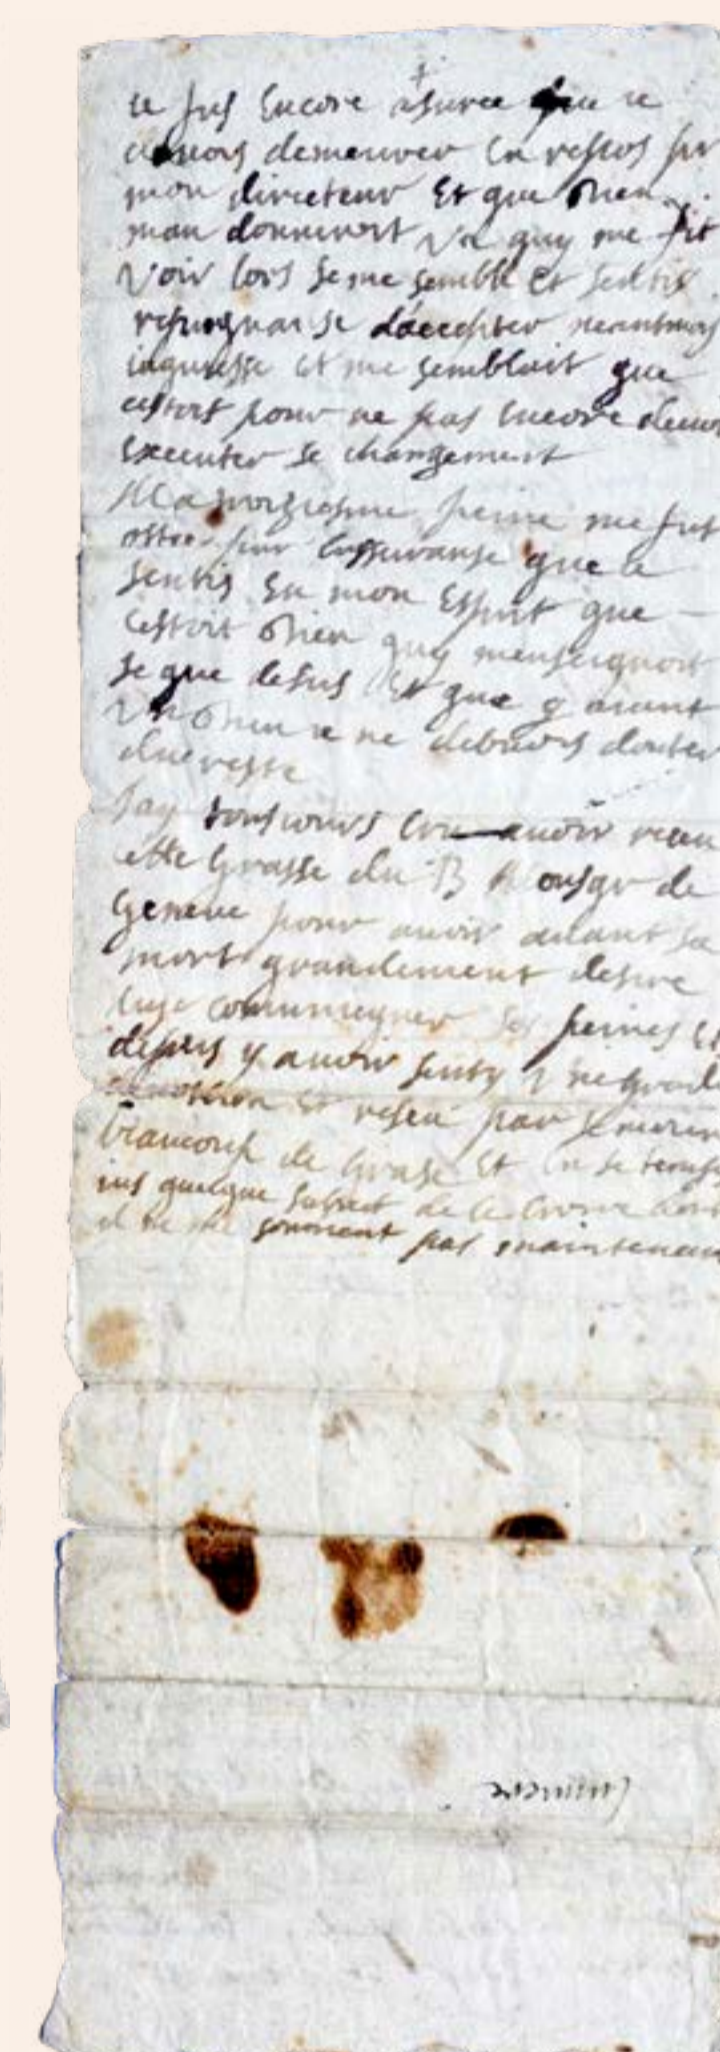 +
Je fus encore assuree que je
devois demeurer en repos sur
mon directeur Et que Dieu
man donneroit Un quy me fit
voir lors se me semble Et sentis
repugnance daccepter neantmoins
iaquiesse Et me semblait que
cestoit pour ne pas encore devoir
Executer se changement
Ma troiziesme peine me fut
ostee par lassuranse que ie
sentis En mon Esprit que
Cestoit Dieu quy menseignoit
se que desus Et que y aiant
Un Dieu ie ne debvois douter
du reste
Jay tousiours creu avoir receu
cette Grasse du B Monsgr de
Geneve pour avoir avant sa
mort grandement desire
luy communiquer ses peines Et
depuis y avoir senty Une grande
devotion Et reseu par se moien
beaucoup de Grase Et En se temps
ius quelque subiect de le croire dont
il ne me souvient pas maintenant
Lumiere